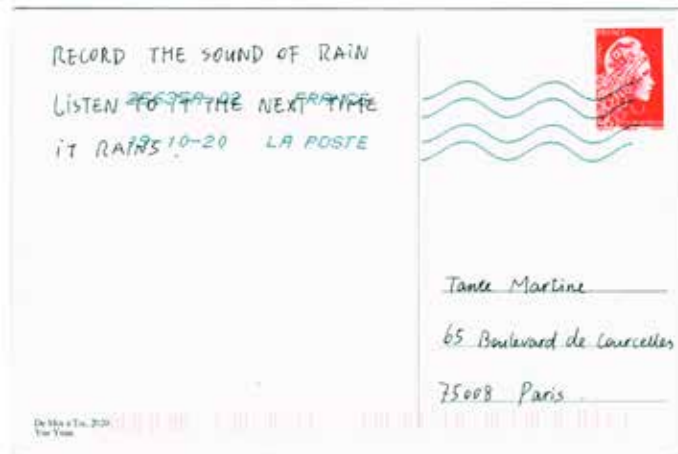 RECORD THE SOUND OF RAIN
LISTEN TO IT THE NEXT TIME
IT RAINS.
FRANCE
19-10-20 LA POSTE
FRANCE
Tante Martine
65 Boulevard de Courcelles
75008 Paris
De Moi à Toi, 2020